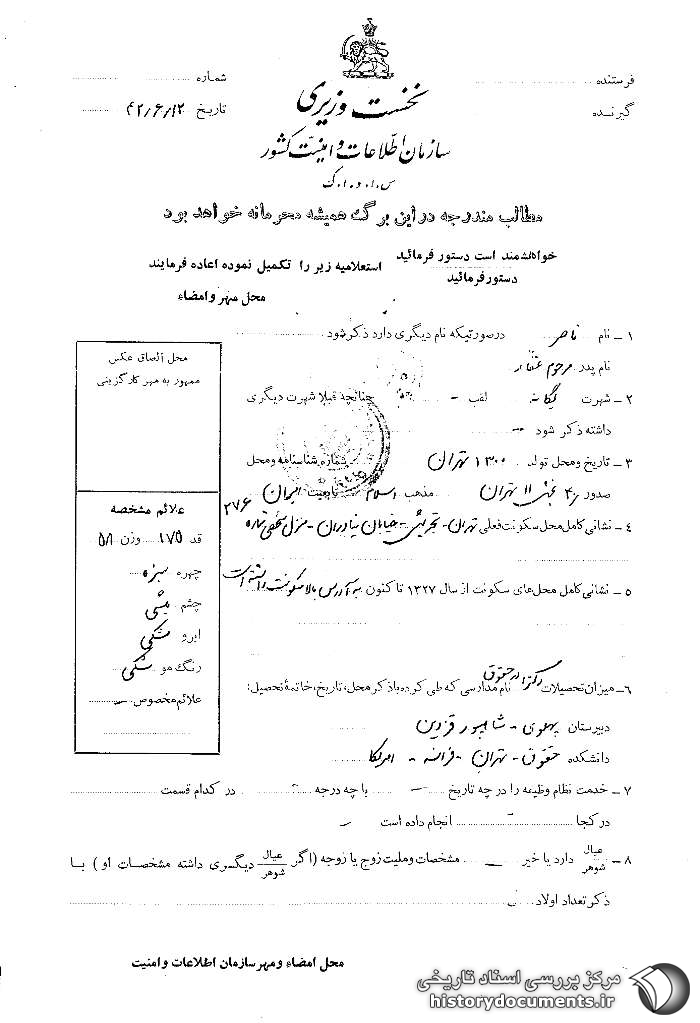 فرستنده
شماره
گیرنده
تاریخ ۴۲/۶/۱۲
نخست وزیری
سازمان اطلاعات و امنیت کشور
س.ا.و.ا.ک
مطالب مندرجه در این برگ همیشه محرمانه خواهد بود
خواهشمند است دستور فرمائید
دستور فرمائید
استعلامیه زیر را تکمیل نموده اعاده فرمایند
محل مهر و امضاء
۱ ـ نام ناصر درصورتیکه نام دیگری دارد ذکر شود
نام پدر مرحوم غفار
۲ ـ شهرت یگانه لقب - چنانچه قبلا شهرت دیگری
داشته ذکر شود -
۳ ـ تاریخ و محل تولد ۱۳۰۰ تهران شماره شناسنامه و محل
صدور بخش ۱۱ تهران مذهب اسلام تابعیت ایران
۴ ـ نشانی کامل محل سکونت فعلی تهران - تجریش - خیابان نیاوران - منزل شخصی شماره ۲۷۶
۵ ـ نشانی کامل محل‌های سکونت از سال ۱۳۲۷ تا کنون به آدرس بالا سکونت داشته است
۶ ـ میزان تحصیلات دکترا در حقوق نام مدارسی که طی کرده با ذکر محل، تاریخ، خاتمهٔ تحصیل:
دبیرستان پهلوی - شاهپور قزوین
دانشکده حقوق - تهران - فرانسه - امریکا
۷ ـ خدمت نظام وظیفه را در چه تاریخ - با چه درجه - در کدام قسمت
در کجا - انجام داده است -
۸ ـ عیال شوهر دارد یا خیر - مشخصات و ملیت زوج یا زوجه (اگر عیال شوهر دیگری داشته مشخصات او) با
ذکر تعداد اولاد
محل الصاق عکس
ممهور به مهر کارگزینی
علائم مشخصه
قد ۱۷۵ وزن ۵۸
چهره سبزه
چشم میشی
ابرو مشکی
رنگ مو مشکی
علائم مخصوص -
محل امضاء و مهر سازمان اطلاعات و امنیت
مرکز بررسی اسناد تاریخی
historydocuments.ir